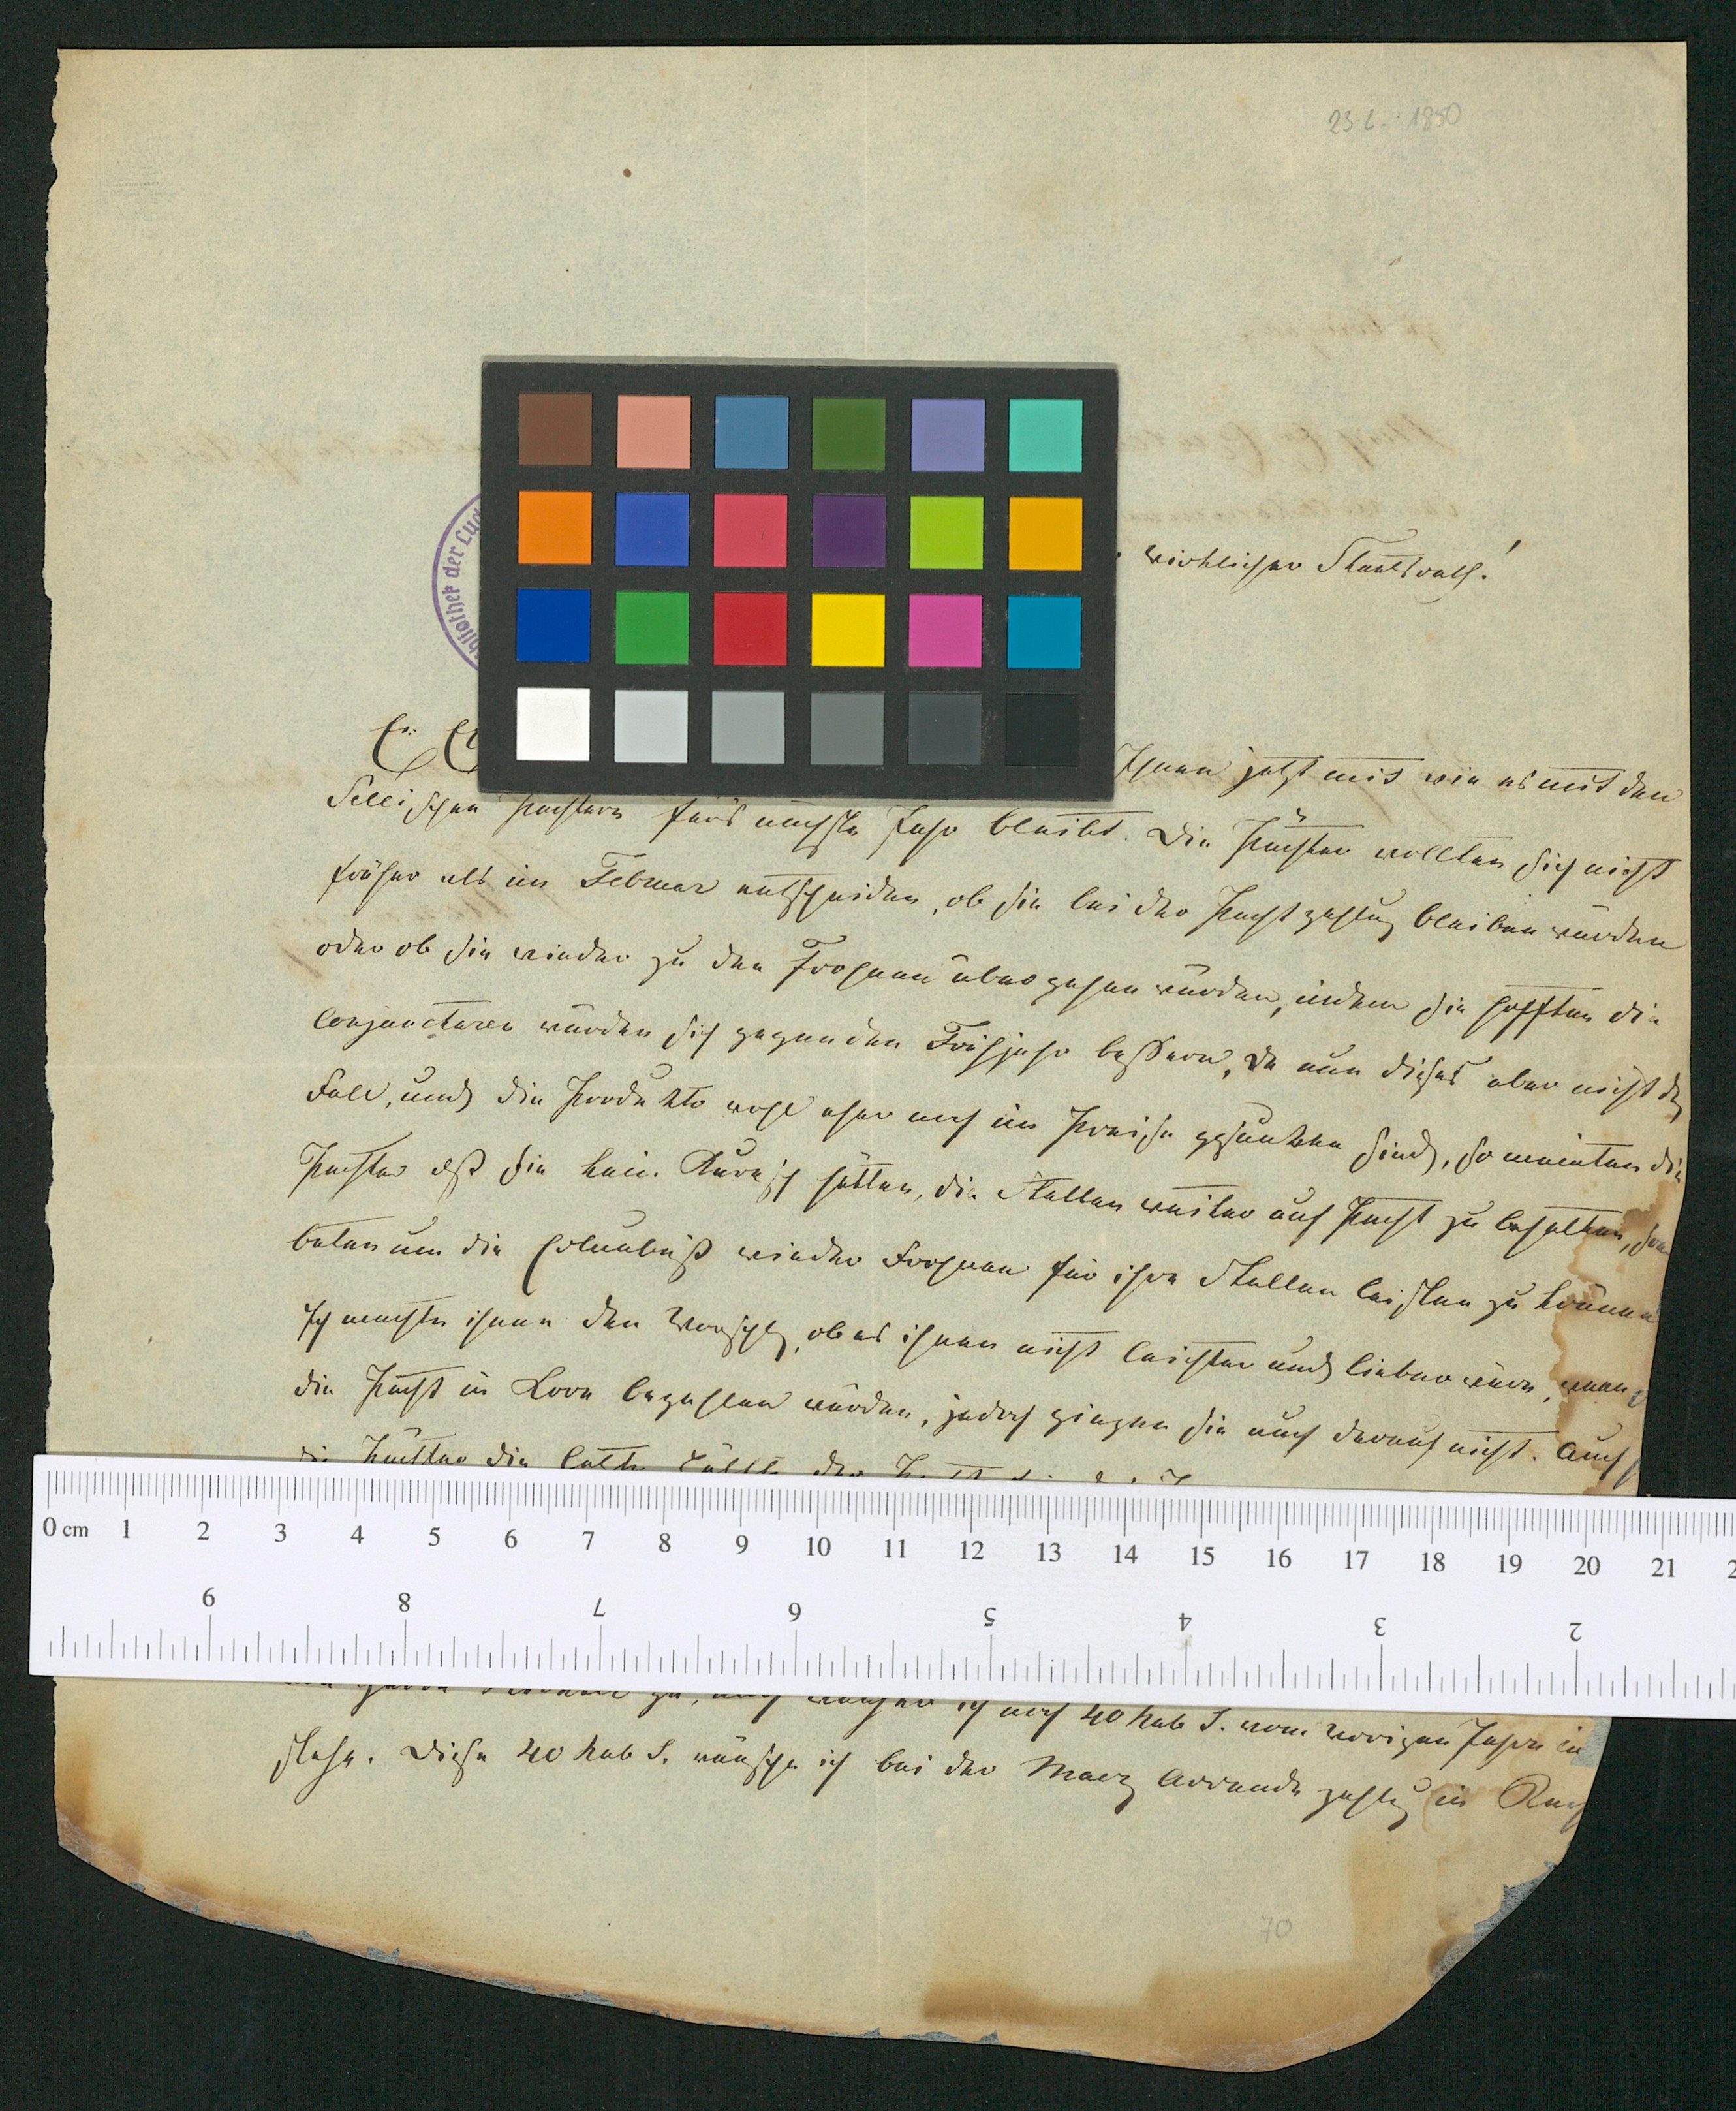 23 2. 1850
bliothek der Luc
wirklicher Staatsrath!
Er. E
Ihnen jetzt mit wie es mit den
Sellischen Pachtern fürs nächste Jahr bleibt. Die Pächter wollten sich nicht
früher als im Februar entscheiden, ob sie bei der Pachtzahlung bleiben würden
oder ob sie wieder zu den Frohnen übergehen würden, indem sie hofften die
Conjuncturen würden sich gegen den Frühjahr bessern, da nun dieses aber nicht der
Fall, und die Produkte wohl eher noch im Preise gesunken sind, so meinten die
Pachter daß sie kein hätten, die Stellen weiter auf Pacht zu behalten,
baten um die Erlaubniß wieder Frohnen für ihre Stellen leisten zu können
Ich machte ihnen den Vorschlag, ob es ihnen nicht leichter und lieber wäre, wenn
die Pacht in Korn bezahlen würden, jedoch gingen sie auch darauf nicht. Auch
die Pächter die letzte Hälfte der
0 cm 1 2 3 4 5 6 7 8 9 10 11 12 13 14 15 16 17 18 19 20 21 2
9 8 7 6 5 4 3 2
ich noch 40 Rub S. vom vorigen Jahre in
stehe. Diese 40 Rub S. wünsche ich bei der Maerz Arrende zahlung in
70